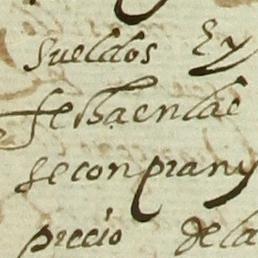 sueldos Ey
fettaen lae
seconprany
precio dela